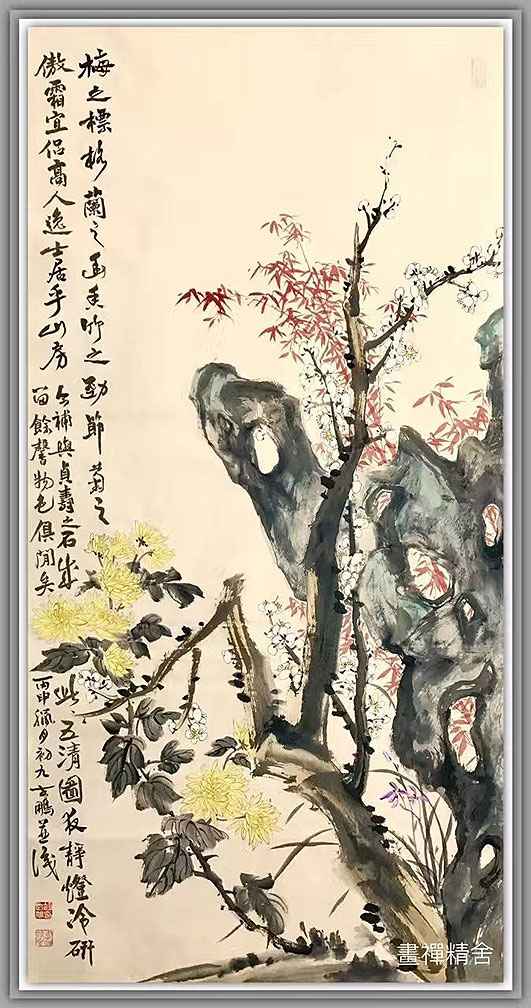 梅之標格蘭之幽香竹之勁節菊之
傲霜宜侶高人逸士居乎山房
補與貞壽之石成
此五清圖夜靜燈冷研
留餘馨物色俱閒矣
丙申臘月初九鵬並識
畫禪精舍